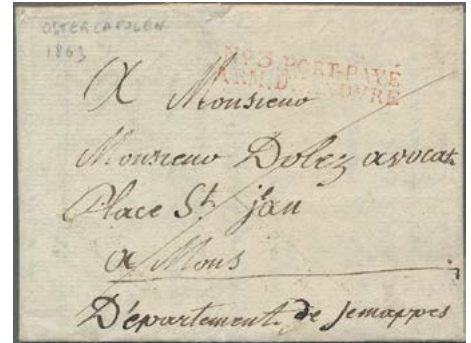 OSTERCAPPELN
1803
No 3 PORT-PAYÉ
ARM. D'HANOVRE
A Monsieur
Monsieur Dolez avocat
Place St jean
a Mons
Département de Jemappes